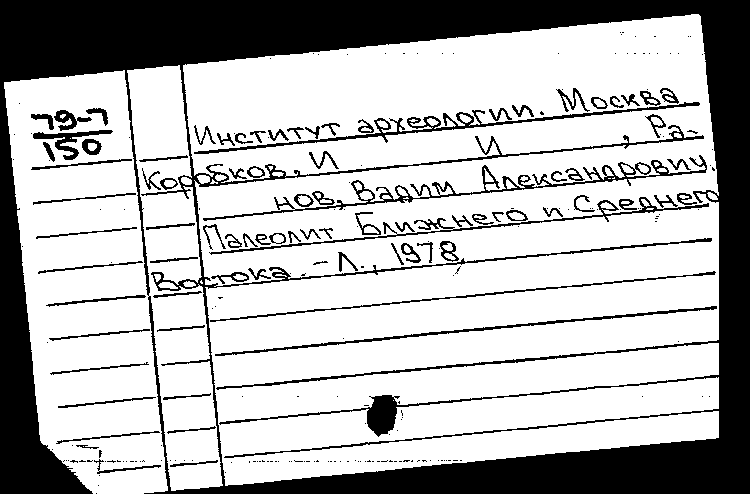 79-7
150
Институт археологии. Москва.
Коробков, И И , Ра-
нов, Вадим Александрович.
Палеолит Ближнего и Среднего
Востока. - Л., 1978.